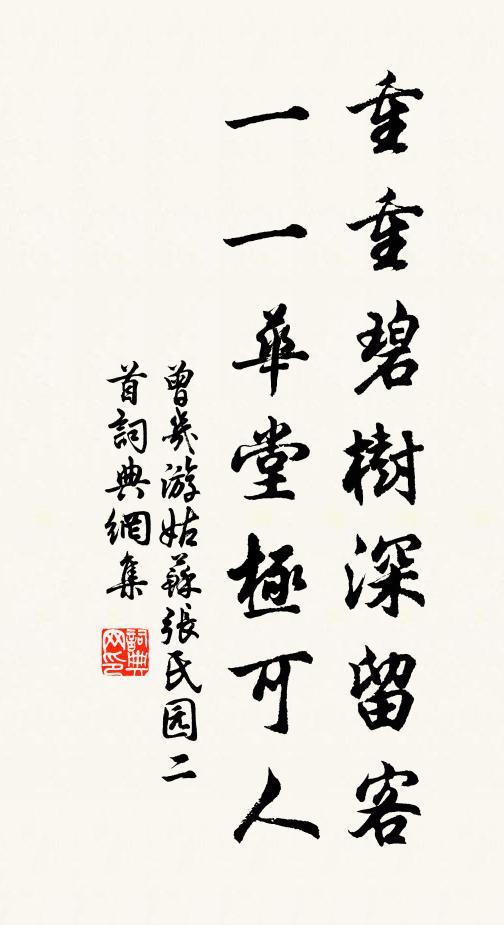 重重碧樹深留客
一一華堂極可人
曾幾游姑蘇張氏园二
首詞典網集
詞典网印